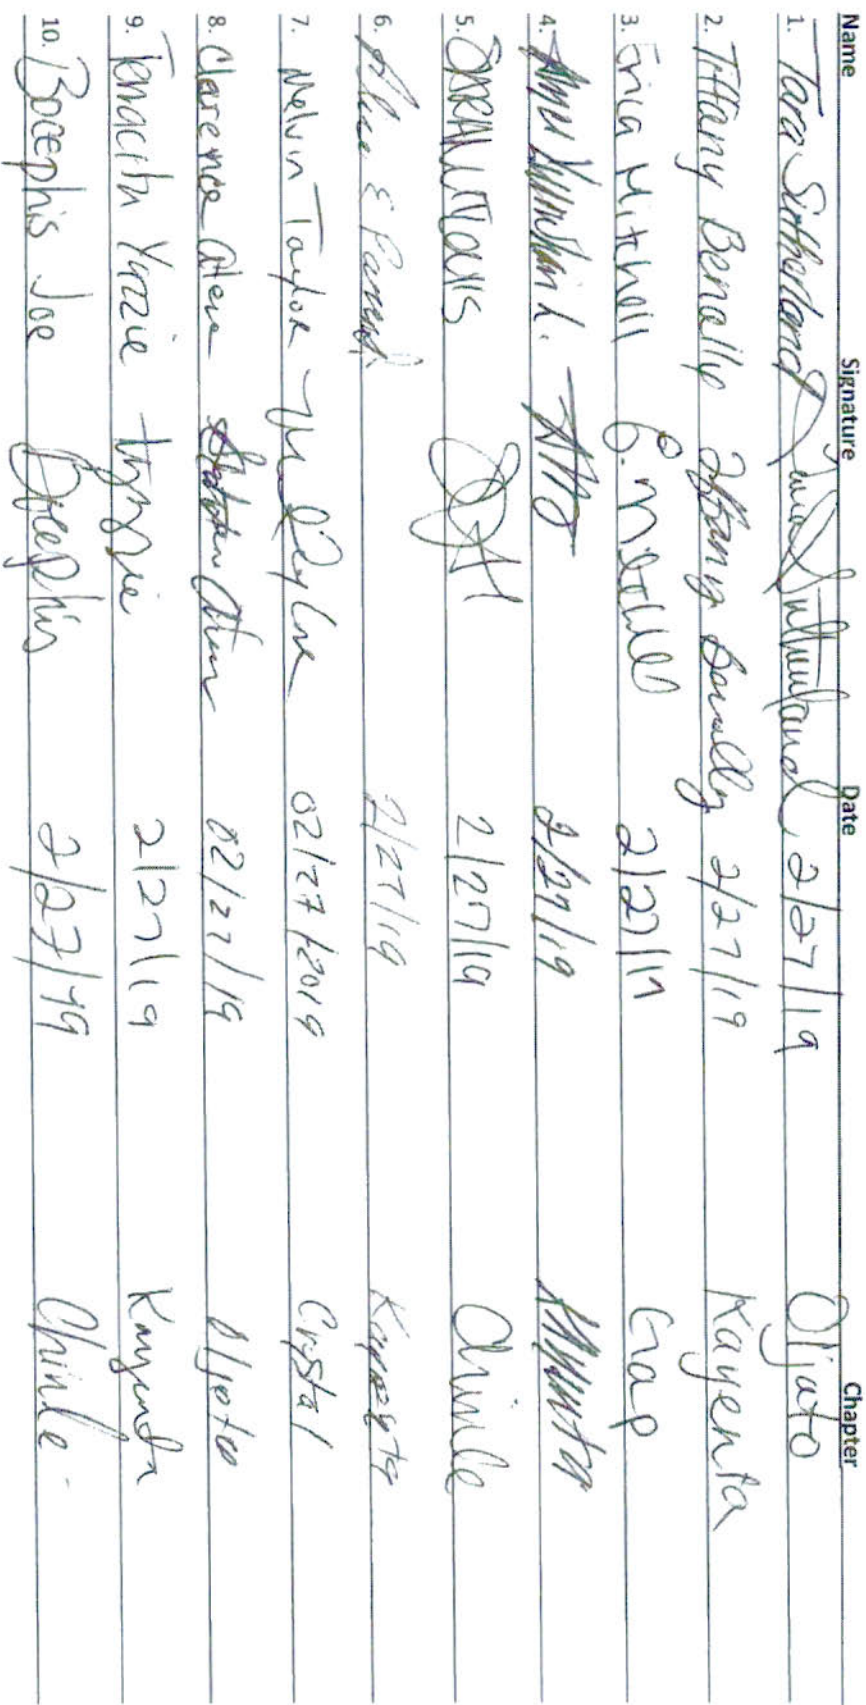 Name Signature Date Chapter
1. Tara Sutherland Tara Sutherland 2/27/19 Oljato
2. Tiffany Benally Tiffany Benally 2/27/19 Kayenta
3. Erica Mitchell E. Mitchell 2/27/19 Gap
4. 2/27/19
5. 2/27/19 Chinle
6. 2/27/19 Kayenta
7. Melvin Taylor 02/27/2019 Crystal
8. Clarence 02/27/19 Oljato
9. Yazzie 2/27/19 Kayenta
10. Bocephis Joe Bocephis 2/27/19 Chinle